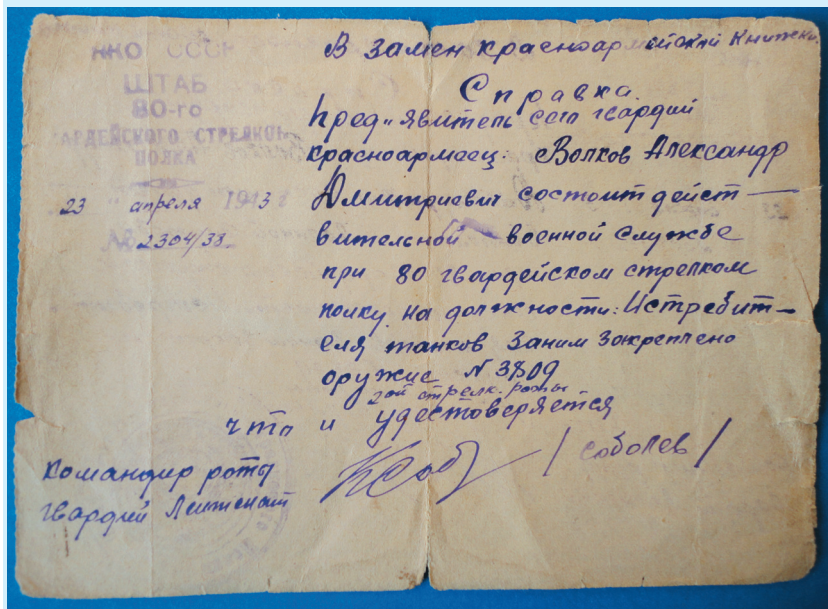 НКО СССР
ШТАБ
80-го
АРДЕЙСКОГО СТРЕЛКОВ
ПОЛКА
23 апреля 1943
№ 2304/38.
В замен красноармейской книжки.
Справка.
Пред"явитель сего гвардий
красноармеец: Волков Александр
Дмитриевич состоит дейст—
вительной военной службе
при 80 гвардейском стрелком
полку на должности: Истребит—
еля танков Заним Закреплено
оружие N 3809
2ой стрелк. роты
что и удостоверяется
Командир роты
гвардий Лейтенант
/ Соболев /